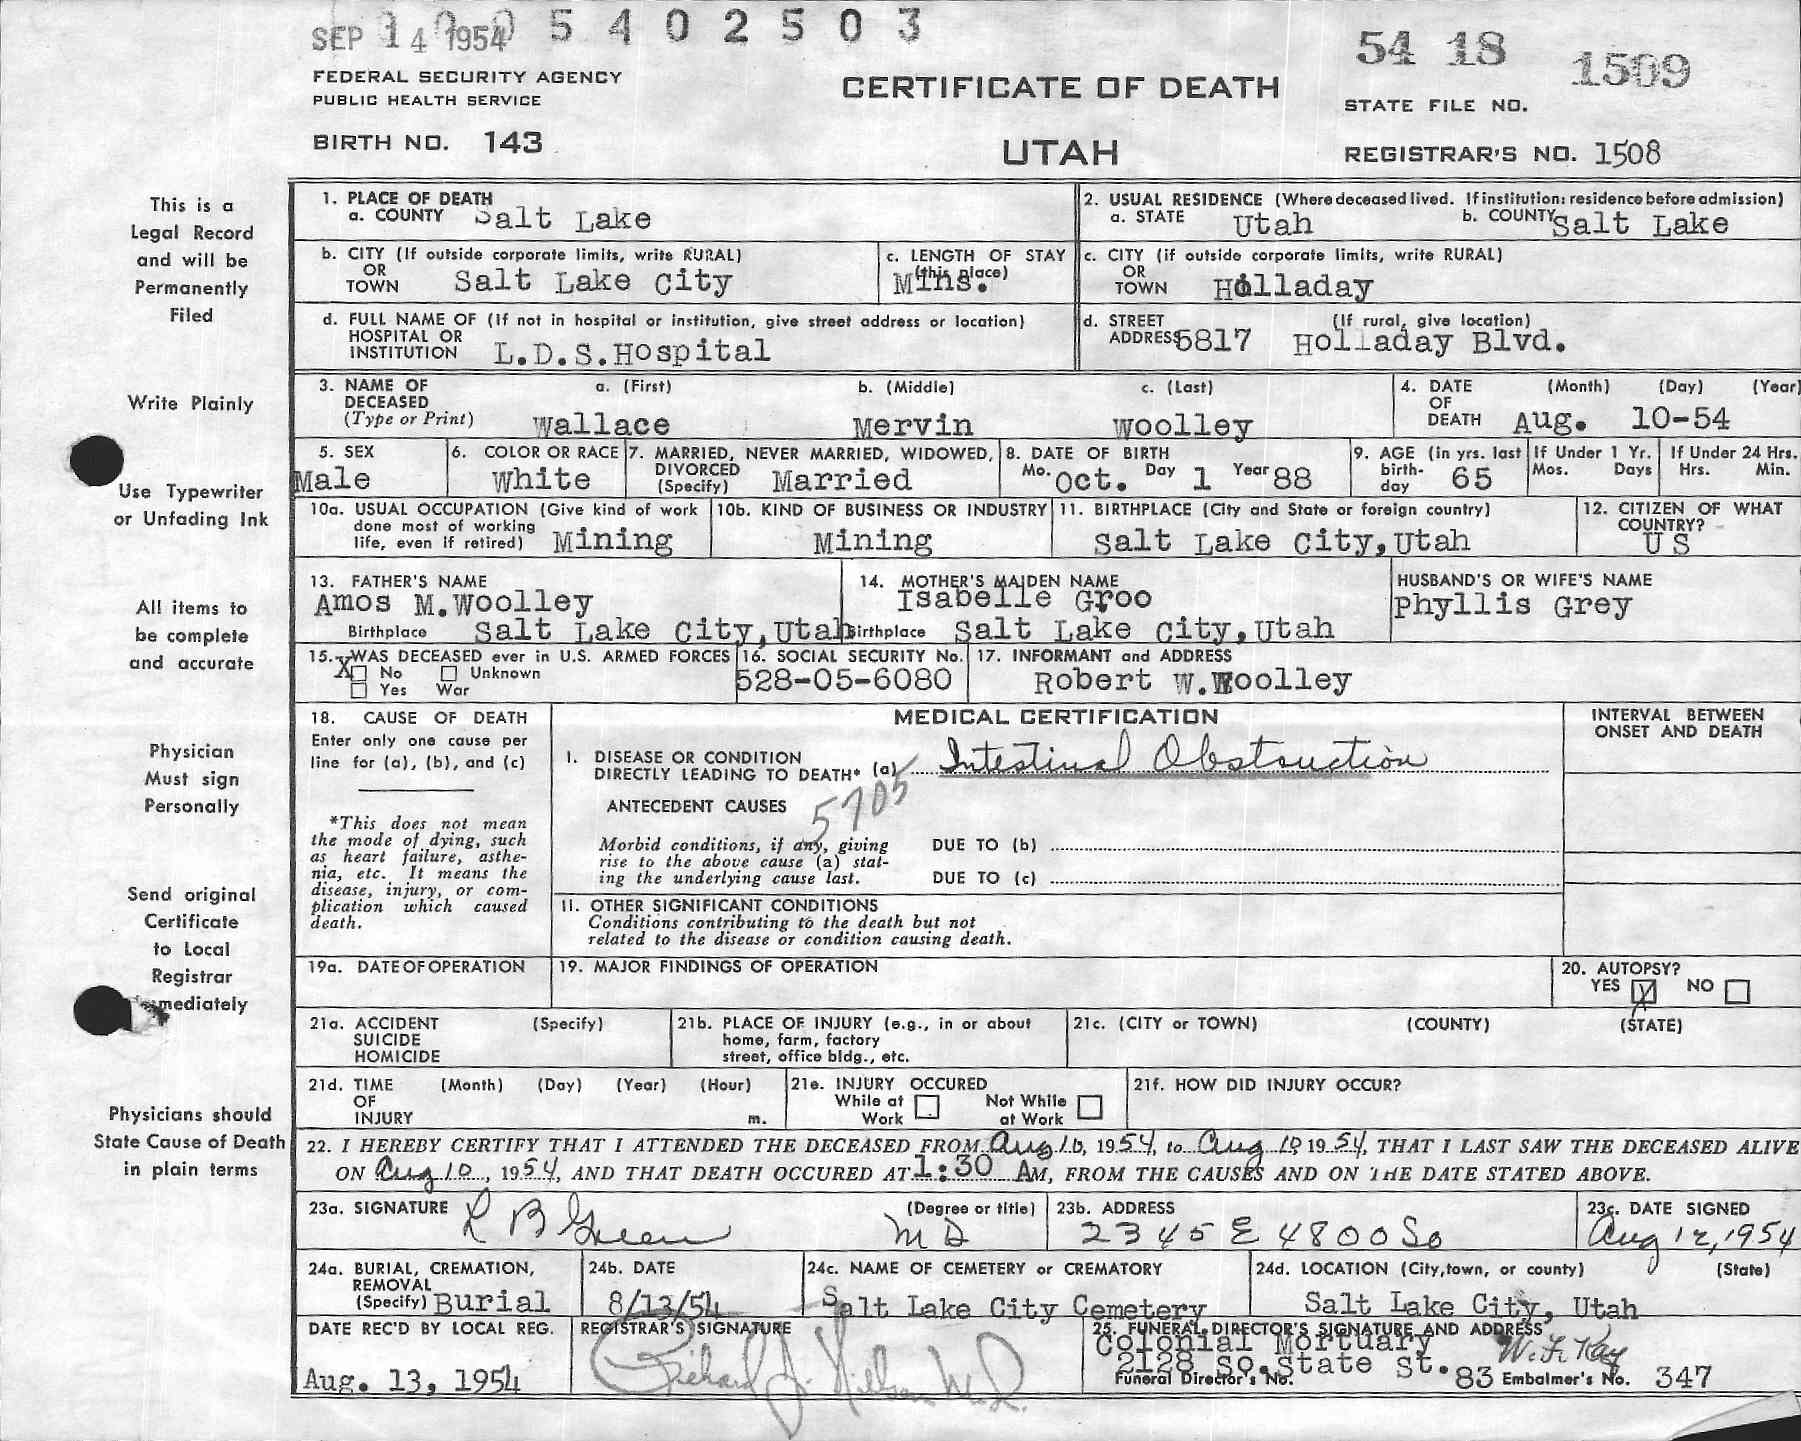 SEP 14 1954 5 4 0 2 5 0 3
54 18 1509
FEDERAL SECURITY AGENCY
PUBLIC HEALTH SERVICE
CERTIFICATE OF DEATH
STATE FILE NO.
BIRTH NO. 143
UTAH
REGISTRAR'S NO. 1508
This is a
Legal Record
and will be
Permanently
Filed
Write Plainly
Use Typewriter
or Unfading Ink
All items to
be complete
and accurate
Physician
Must sign
Personally
Send original
Certificate
to Local
Registrar
mediately
Physicians should
State Cause of Death
in plain terms
1. PLACE OF DEATH
a. COUNTY Salt Lake
2. USUAL RESIDENCE (Where deceased lived. If institution: residence before admission)
a. STATE Utah b. COUNTY Salt Lake
b. CITY (If outside corporate limits, write RURAL)
OR
TOWN Salt Lake City
c. LENGTH OF STAY
(this place)
Mins.
c. CITY (if outside corporate limits, write RURAL)
OR
TOWN Holladay
d. FULL NAME OF (If not in hospital or institution, give street address or location)
HOSPITAL OR
INSTITUTION L.D.S.Hospital
d. STREET (If rural, give location)
ADDRESS 5817 Holladay Blvd.
3. NAME OF a. (First) b. (Middle) c. (Last)
DECEASED
(Type or Print) Wallace Mervin Woolley
4. DATE (Month) (Day) (Year)
OF
DEATH Aug. 10-54
5. SEX
Male
6. COLOR OR RACE
White
7. MARRIED, NEVER MARRIED, WIDOWED,
DIVORCED
(Specify) Married
8. DATE OF BIRTH
Mo. Oct. Day 1 Year 88
9. AGE (in yrs. last
birth-
day 65
If Under 1 Yr.
Mos. Days
If Under 24 Hrs.
Hrs. Min.
10a. USUAL OCCUPATION (Give kind of work
done most of working
life, even if retired) Mining
10b. KIND OF BUSINESS OR INDUSTRY
Mining
11. BIRTHPLACE (City and State or foreign country)
Salt Lake City, Utah
12. CITIZEN OF WHAT
COUNTRY?
U S
13. FATHER'S NAME
Amos M.Woolley
Birthplace Salt Lake City, Utah
14. MOTHER'S MAIDEN NAME
Isabelle Groo
Birthplace Salt Lake City, Utah
HUSBAND'S OR WIFE'S NAME
Phyllis Grey
15. WAS DECEASED ever in U.S. ARMED FORCES
X No Unknown
Yes War
16. SOCIAL SECURITY No.
528-05-6080
17. INFORMANT and ADDRESS
Robert W.Woolley
18. CAUSE OF DEATH
Enter only one cause per
line for (a), (b), and (c)
*This does not mean
the mode of dying, such
as heart failure, asthe-
nia, etc. It means the
disease, injury, or com-
plication which caused
death.
MEDICAL CERTIFICATION
INTERVAL BETWEEN
ONSET AND DEATH
I. DISEASE OR CONDITION
DIRECTLY LEADING TO DEATH* (a) Intestinal Obstruction
ANTECEDENT CAUSES 5705
Morbid conditions, if any, giving
rise to the above cause (a) stat-
ing the underlying cause last.
DUE TO (b)
DUE TO (c)
11. OTHER SIGNIFICANT CONDITIONS
Conditions contributing to the death but not
related to the disease or condition causing death.
19a. DATE OF OPERATION
19. MAJOR FINDINGS OF OPERATION
20. AUTOPSY?
YES X NO
21a. ACCIDENT (Specify)
SUICIDE
HOMICIDE
21b. PLACE OF INJURY (e.g., in or about
home, farm, factory
street, office bldg., etc.
21c. (CITY or TOWN) (COUNTY) (STATE)
21d. TIME (Month) (Day) (Year) (Hour)
OF
INJURY m.
21e. INJURY OCCURED
While at Not While
Work at Work
21f. HOW DID INJURY OCCUR?
22. I HEREBY CERTIFY THAT I ATTENDED THE DECEASED FROM Aug 10, 1954, to Aug 10 1954, THAT I LAST SAW THE DECEASED ALIVE
ON Aug 10, 1954, AND THAT DEATH OCCURED AT 1:30 AM, FROM THE CAUSES AND ON THE DATE STATED ABOVE.
23a. SIGNATURE (Degree or title)
R B Green MD
23b. ADDRESS
2345 E 4800 So
23c. DATE SIGNED
Aug 12, 1954
24a. BURIAL, CREMATION,
REMOVAL
(Specify) Burial
24b. DATE
8/13/54
24c. NAME OF CEMETERY or CREMATORY
Salt Lake City Cemetery
24d. LOCATION (City, town, or county) (State)
Salt Lake City, Utah
DATE REC'D BY LOCAL REG.
Aug. 13, 1954
REGISTRAR'S SIGNATURE
Richard
25. FUNERAL DIRECTOR'S SIGNATURE AND ADDRESS
Colonial Mortuary W. F. Kay
2128 So.State St.
Funeral Director's No. 83 Embalmer's No. 347